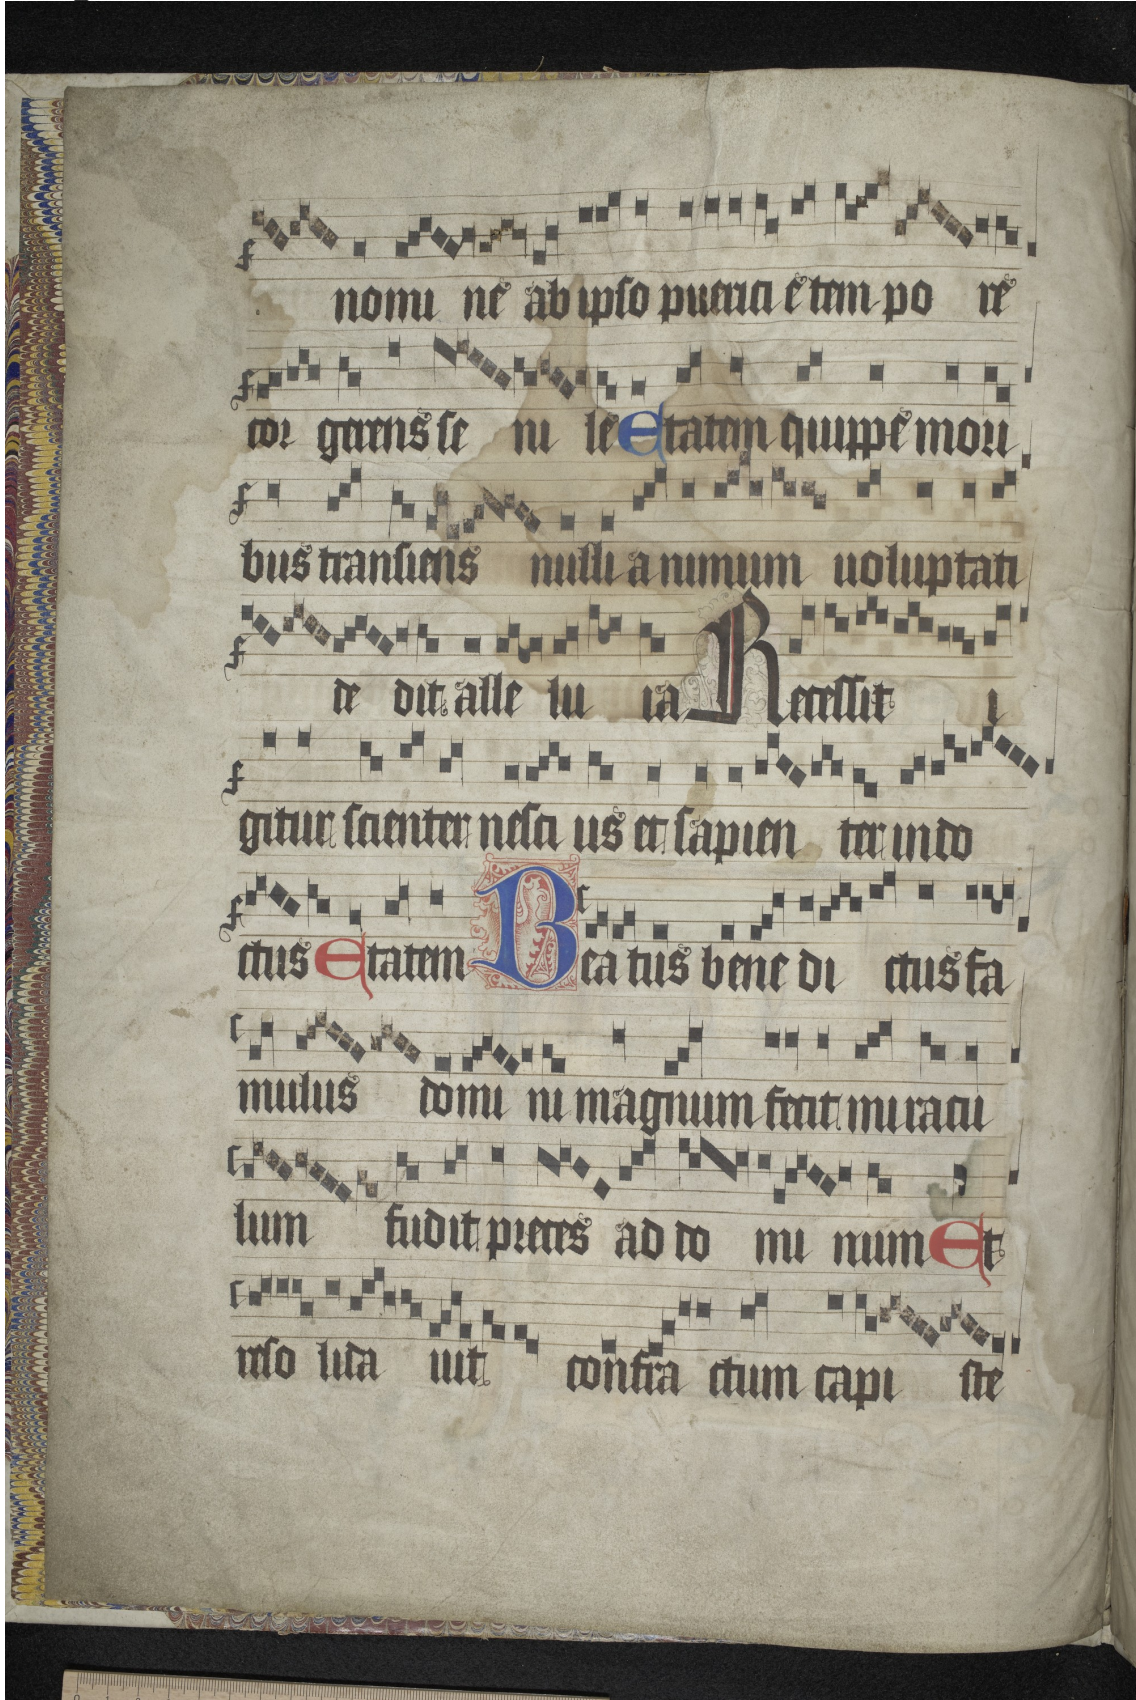 nomi nē ab ipso puerici ē tem po rē
cor gerens se ni lē Etatem quippē mori
bus transiens nulli animum uoluptati
de dit alle lu ia Recessit i
gitur scienter nesci us et sapien ter indo
ctus Etatem Beatus bene di ctus fa
mulus domi ni magnum fecit miracu
lum fudit preces ad do mi num Et
reso lida uit confra ctum capi ste